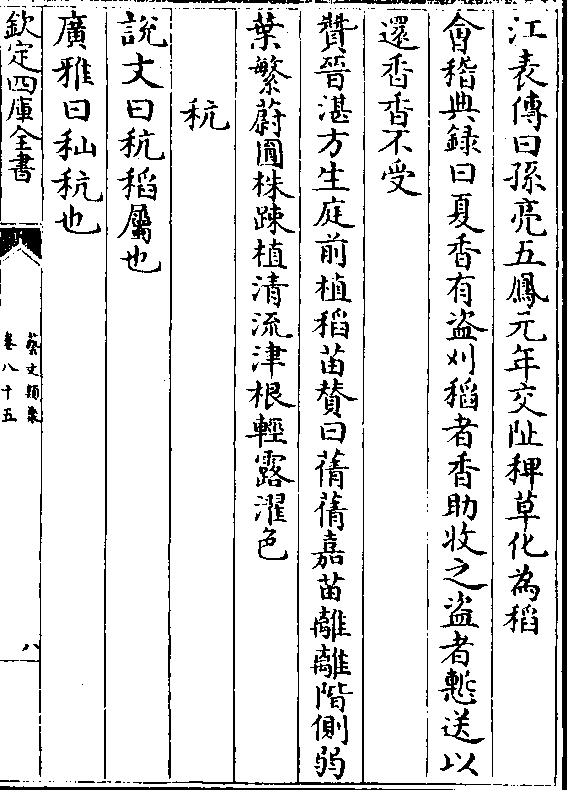 江表傳曰孫亮五鳳元年交阯稗草化為稻
會稽典録曰夏香有盗刈稻者香助收之盗者慙送以
還香香不受
贊晉湛方生庭前植稻苗贊曰蒨蒨嘉苗離離階側弱
葉繁蔚圓株踈植清流津根輕露濯色
秔
說文曰秔稻屬也
廣雅曰秈秔也
欽定四庫全書
藝文類聚
卷八十五
八